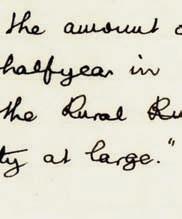 the amount o
halfyear in
the Rural Ru
ty at large."